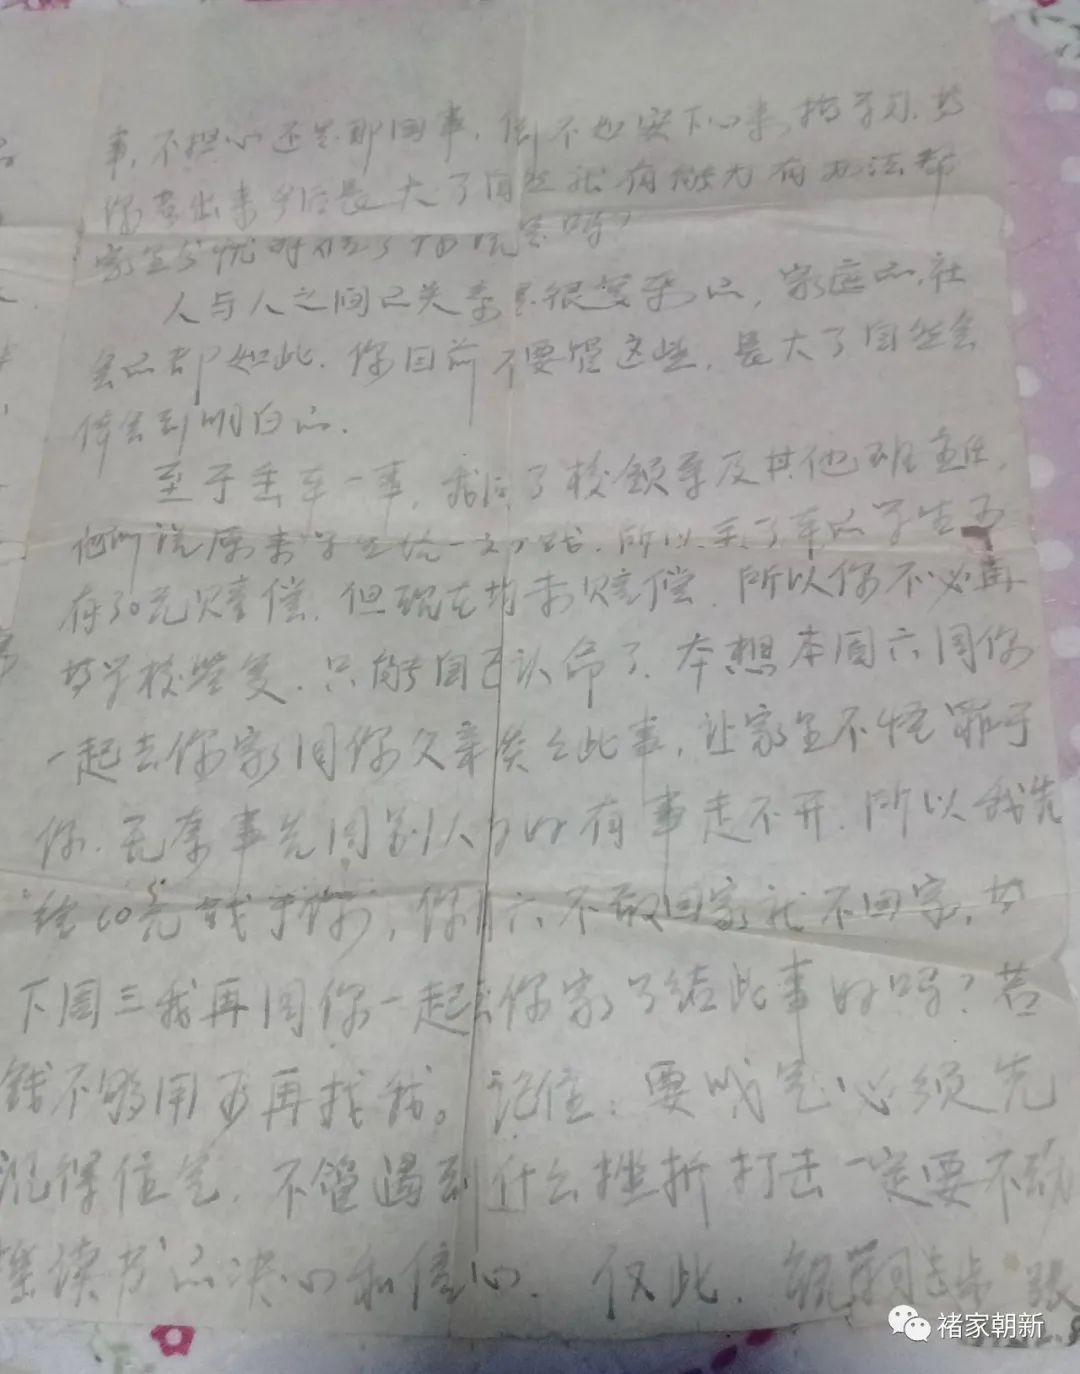 事,不担心还是那回事,倒不如安下心来搞学习,等
你考出来今后长大了自然就有能力有办法帮
家里分忧对付了
人与人之间的关系是很复杂的,家庭的,社
会的都如此.你目前不要管这些,长大了自然会
体会到明白的.
至于丢车一事,我问了校领导及其他班主任,
他们说原来学生统一交了钱,所以丢了车的学生可
有30元赔偿,但现在均未赔偿.所以你不必再
等学校答复.只能自己认命了.本想本周六同你
一起去你家同你父亲谈谈此事,让家里不怪罪于
你.无奈事先同别人约好有事走不开.所以我先
给10元钱于你,你周六不敢回家就不回家,等
下周三我再同你一起去你家了结此事好吗?若
钱不够用可再找我。记住:要成气必须先
沉得住气.不管遇到什么挫折打击一定要不动
摇读书的决心和信心.仅此.祝学习进步 张
褚家朝新